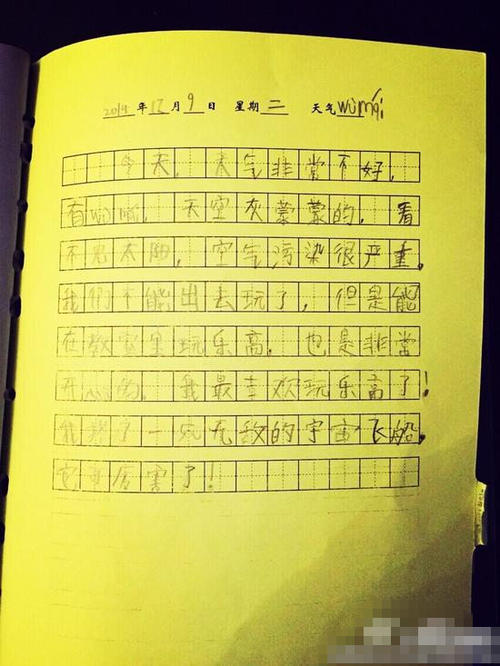 2014年12月9日 星期二 天气wùmái
今天，天气非常不好，
有wù霾，天空灰蒙蒙的，看
不见太阳，空气污染很严重，
我们不能出去玩了，但是能
在教室里玩乐高，也是非常
开心的，我最喜欢玩乐高了！
我拼了一艘无敌的宇宙飞船，
它可厉害了！